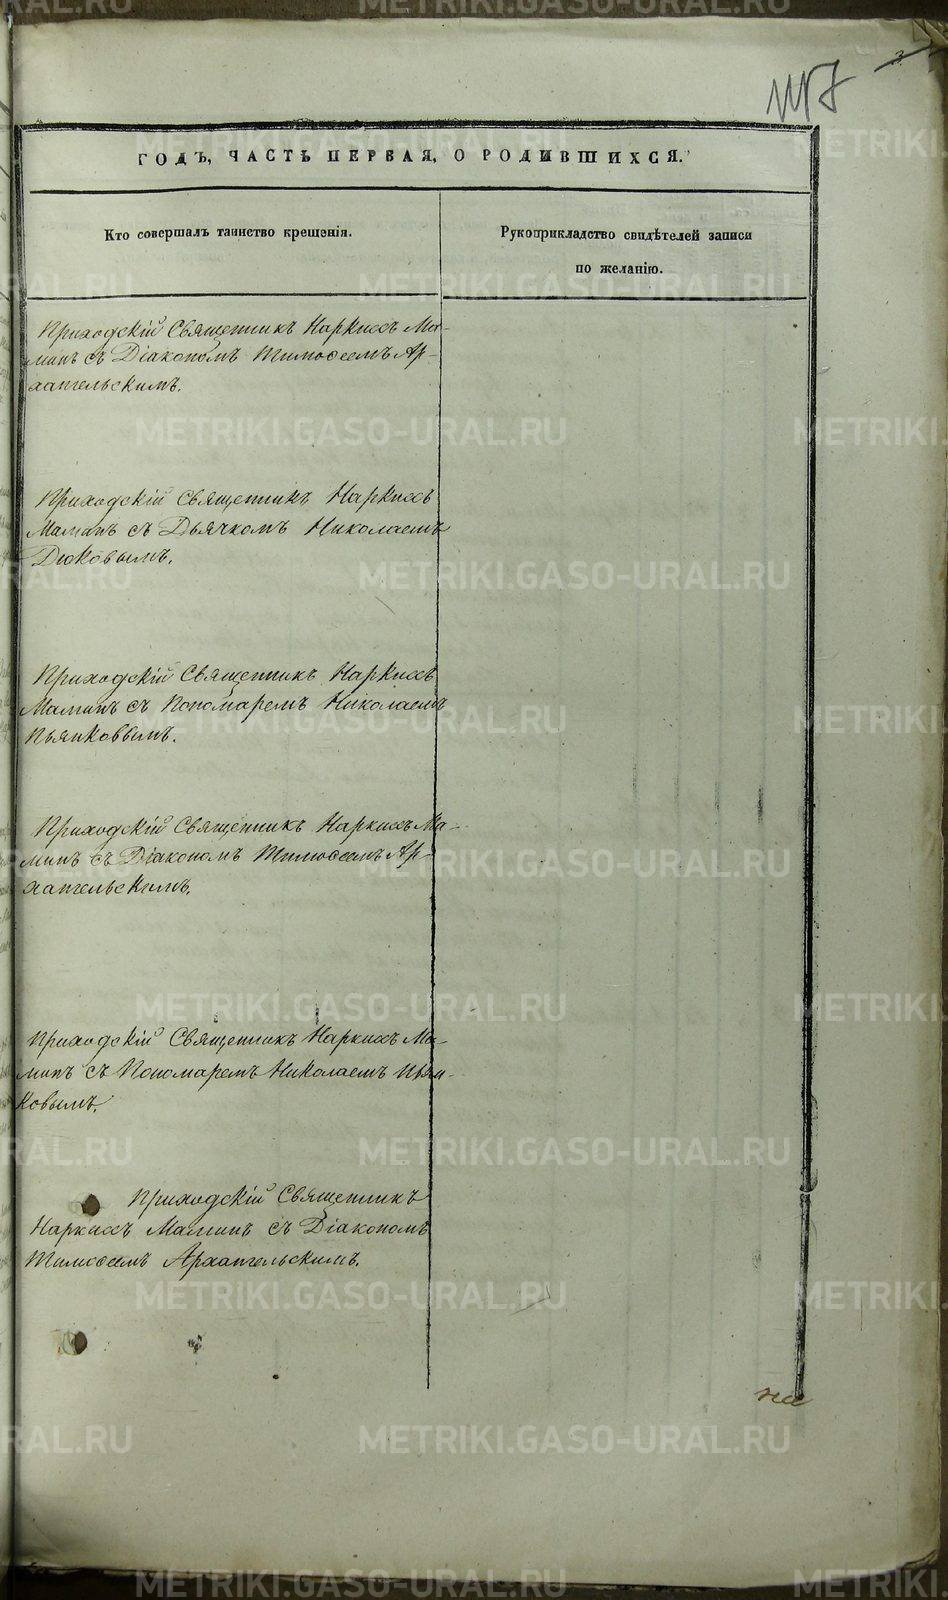 3.
ГОДЪ, ЧАСТЬ ПЕРВАЯ, О РОДИВШИХСЯ.
Кто совершалъ таинство крещенія.
Рукоприкладство свидѣтелей записи
по желанію.
Приходскій Священникъ Наркиссъ Ма-
минъ съ Діакономъ Тимоѳеемъ Ар-
хангельскимъ.
Приходскій Священникъ Наркиссъ
Маминъ съ Дьячкомъ Николаемъ
Дюковымъ.
Приходскій Священникъ Наркиссъ
Маминъ съ Пономаремъ Николаемъ
Пьянковымъ.
Приходскій Священникъ Наркиссъ Ма-
минъ съ Діакономъ Тимоѳеемъ Ар-
хангельскимъ.
Приходскій Священникъ Наркиссъ Ма-
минъ съ Пономаремъ Николаемъ Пьян-
ковымъ.
Приходскій Священникъ
Наркиссъ Маминъ съ Діакономъ
Тимоѳеемъ Архангельскимъ.
METRIKI.GASO-URAL.RU